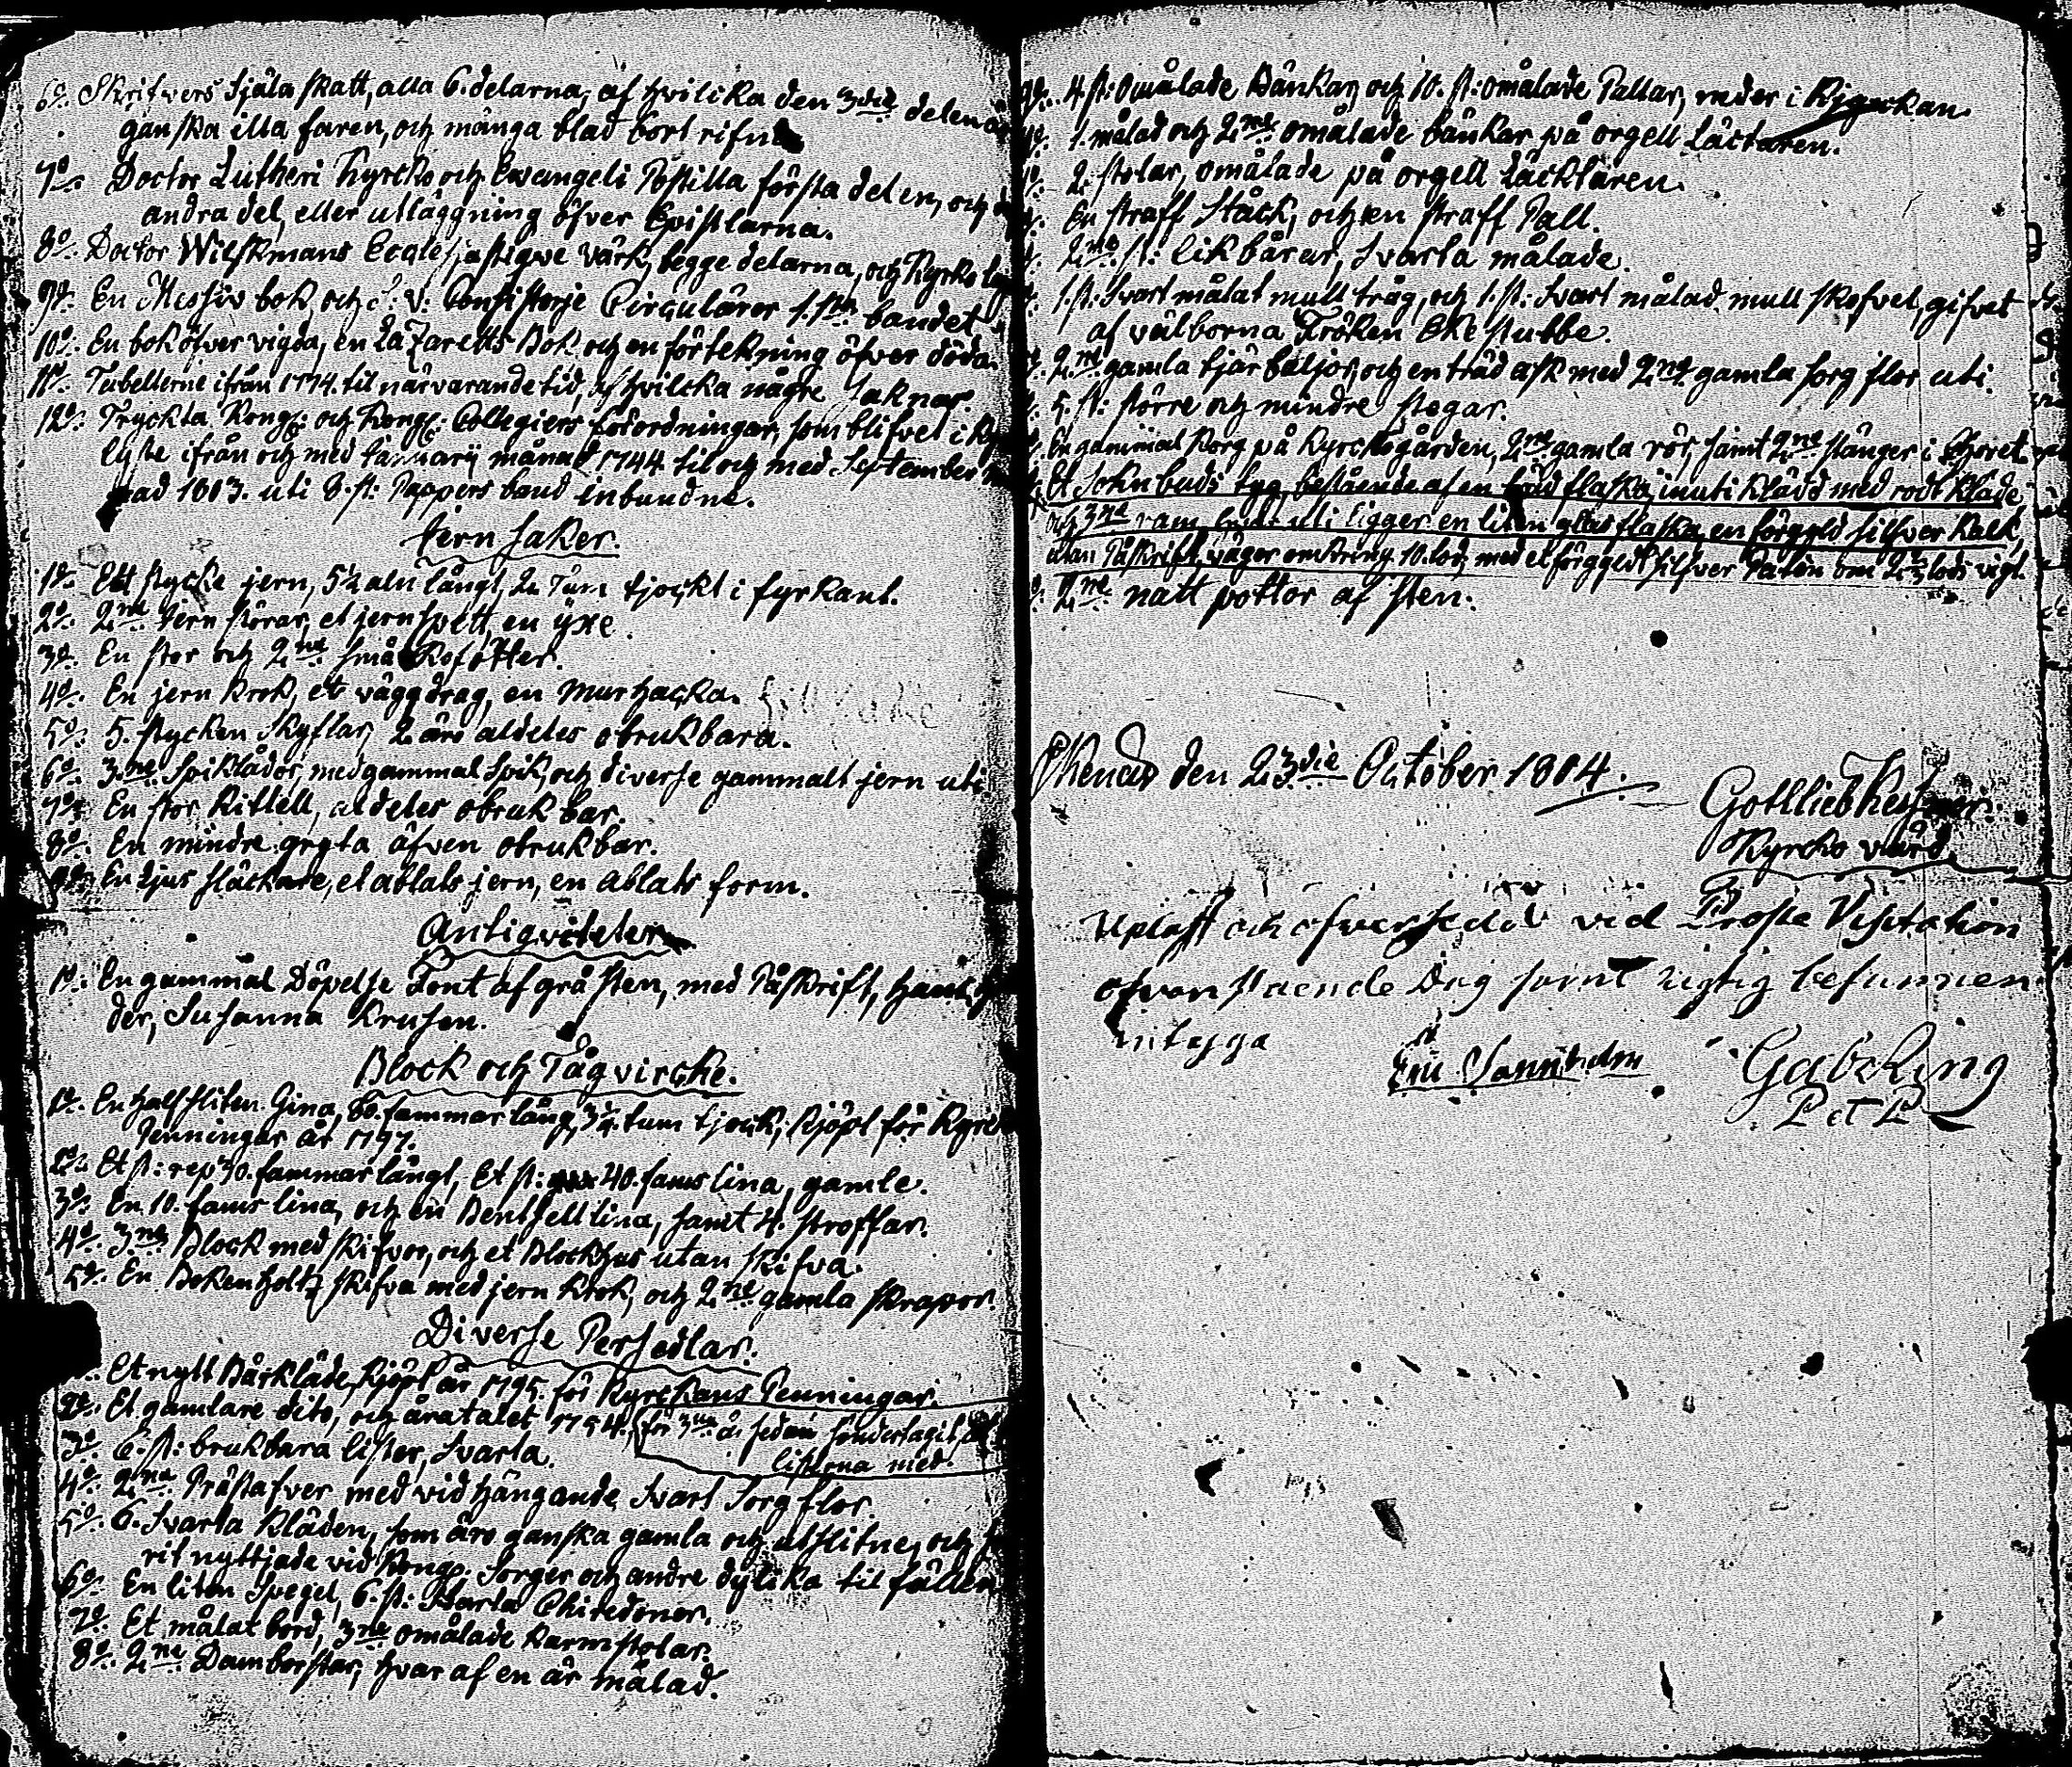 6o. Skrifvers Själa skatt, alla 6. delarna, af hvilika den 3die delen är
ganska illa faren, och många blad bort rifne
7o. Doctor Lutheri Kyrcko och Ewangeli Postilla första delen, och
andra del, eller utläggning öfver Epistlarna.
8o. Doctor Wilskmans Ecclesjastiqve värk, begge delarna, och Kyrko
9o. En Messiv bok, och Consistorje Circulärer 1.sta bandet
10o. En bok öfver vigda, en Lazaretts Bok och en förtekning öfver döda.
11o. Tabellerne ifrån 1774. til närvarande tid, af hvilcka någre saknas.
12o. Tryckta Kongl: och Kongl: Collegiers förordningar, som blifvet i
lyste ifrån och med Januarij månad 1744 til och med September
nad 1803. uti 8. st: Pappers band inbundne.
Jern saker.
1o. Ett stycke jern, 5½ aln långt, 2 Tum tjockt i fyrkant.
2o. 2ne Jern störar, et jernspett, en yxe.
3o. En stor och 2ne små Kofötter.
4o. En jern krok, et väggdrag, en Murhacka.
5o. 5. stycken Skyflar, 2 äro aldeles obrukbara.
6o. 3ne Spiklådor, med gammal Spik, och diverse gammalt jern uti
7o. En stor Kittell, aldeles obrukbar.
8o. En mindre gryta äfven obrukbar.
9o. En Ljus släckare, et ablats jern, en ablats form.
Antiqviteter
1o. En gammal Döpelse Font af grå sten, med Påskrift,
der, Susanna Krusen.
Block och Tågvircke.
1o. En half sliten Gina, 60. fammar lång, 3¼ tum tjock, kjöpt för Kyrc
Penningar år 1797.
2o. Et st: rep 30. fammar långt, Et st: 40. fams lina, gamle.
3o. En 10. fams lina, och en Bentsell lina, samt 4. stroffar.
4o. 3ne Block med skifvor, och et Blockhus utan skifva.
5o. En Bokenholtz skifva med jern krok, och 2ne gamla skrapor.
Diverse Persedlar.
Et nytt Bårkläde, kjöpt år 1795. för Kyrckans Penningar.
2o. Et gamlare dito, och åratalet 1754. för 3ne år sedan söndertagit
3o. 6. st: brukbara lister, svarta. listerna med.
4o. 2ne Prästafver med vidhängande svart Sorgflor.
5o. 6. Svarta kläden, som äro ganska gamla och utslitne, och
rit nyttjade vid Kongl: Sorger och andre dylika til fällen
6o. En liten Spegel, 6. st:
7o. Et målat bord, 3ne omålade karmstolar.
8o. 2ne Damborstar, hvar af en är målad.
4 st: Omålade Bänkar, och 10. st: omålade Pallar, neder i Kyrckan.
1. målad och 2ne omålade bänkar på orgell Läctaren.
2. stolar, omålade på orgell läcktaren.
En straff Ståck, och en straff Pall.
2ne st: likbårar, svarta målade.
1. st: Svart målat mull tråg, och 1. st: Svart målad mull skofvel, gifvet
af välborna Fröken Ekestubbe.
2ne gamla tjär baljor, och en träd ask med 2ne gamla sorg flor uti.
5. st: större och mindre stegar.
En gammal Korg på Kyrckogården, 2ne gamla rör, samt 2ne stänger i Choret
Et Sokn buds tyg, bestående af en träd flaska, inuti klädd med rödt kläde
och 3ne rum, hvar uti ligger en liten glas flaska, en förgyld silfver Kalk,
utan Påskrift, väger omkring 10. lod, med et förgyldt silfver Paten om 2½ lods vigt.
2ne natt pottor af sten.
Ekenäs den 23die October 1804.
Gottlieb
Kyrcko värd
Upläst och öfversedd vid Prosta Visitation
ofvanstaende Dag samt rigtig befunnen
intyga